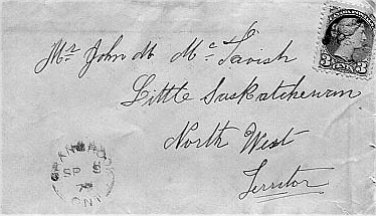 Mr John M McTavish
Little Saskatchewan
North West
Territor
3 3
SP 8
79
ONT